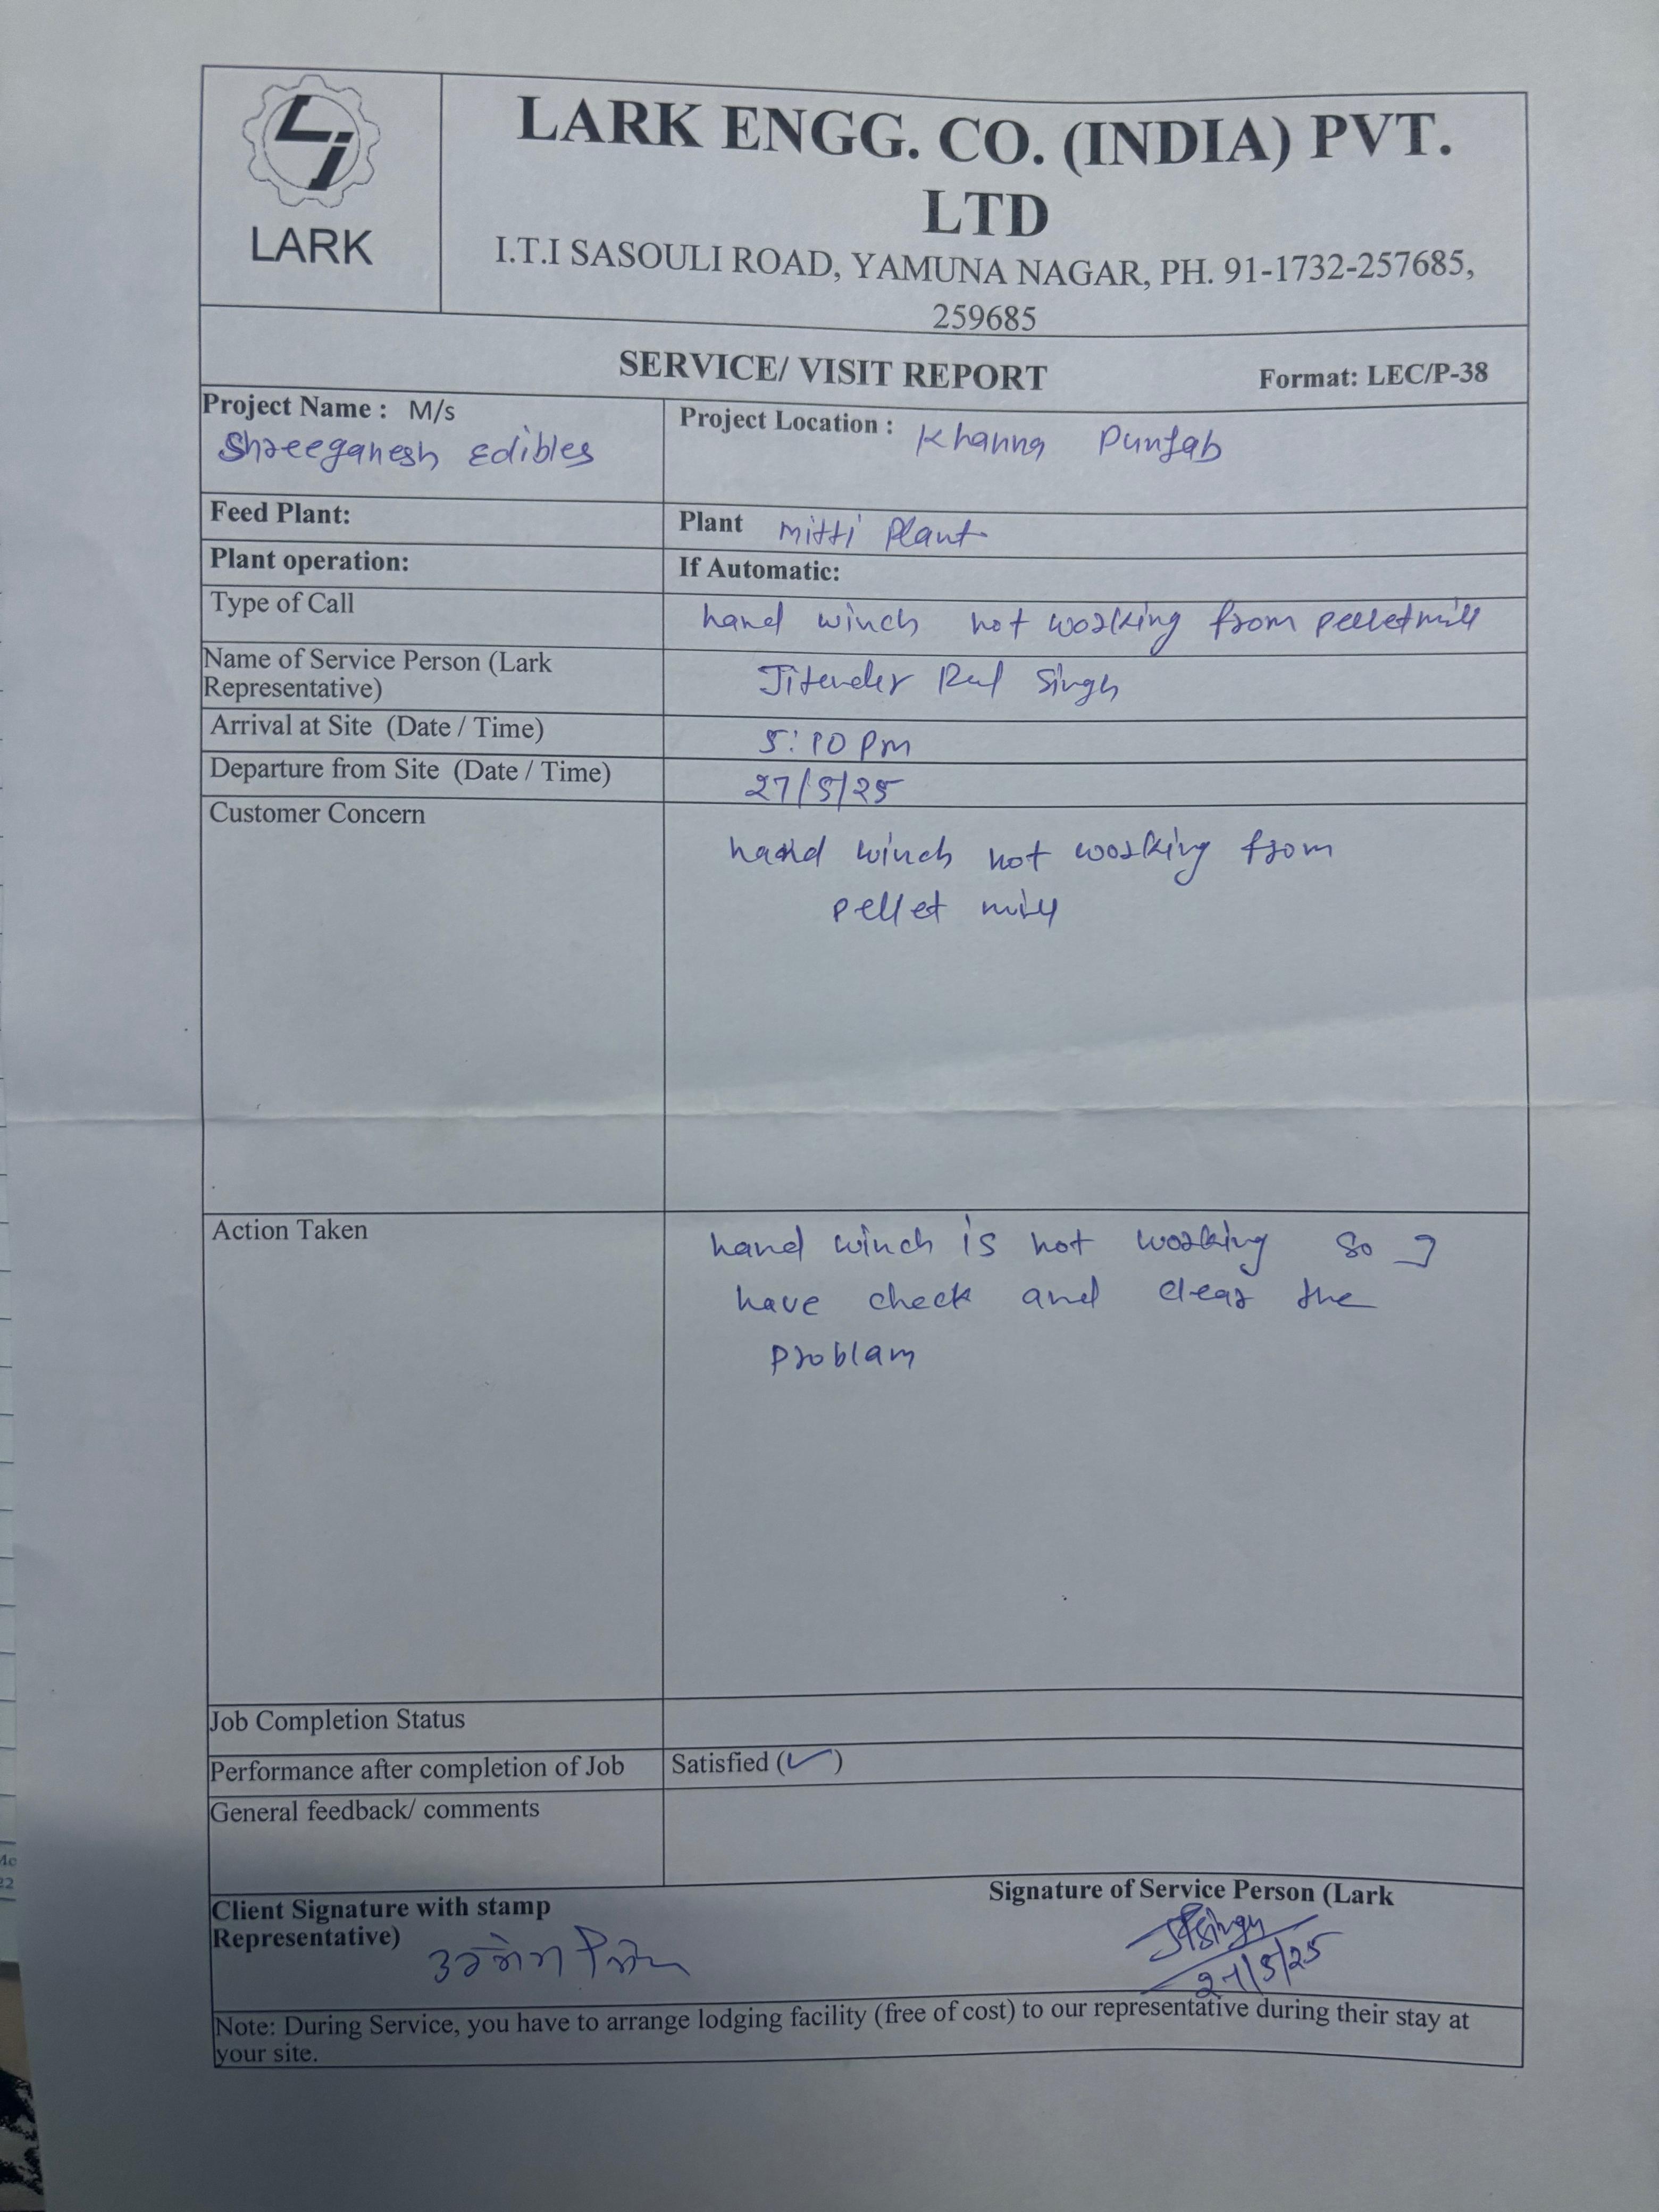 LARK
LARK ENGG. CO. (INDIA) PVT.
LTD
I.T.I SASOULI ROAD, YAMUNA NAGAR, PH. 91-1732-257685,
259685
SERVICE/ VISIT REPORT
Format: LEC/P-38
Project Name : M/s
Shreeganesh Edibles
Project Location : Khanna Punjab
Feed Plant:
Plant mitti Plant
Plant operation:
If Automatic:
Type of Call
hand winch not working from pelletmill
Name of Service Person (Lark
Representative)
Jitender Singh
Arrival at Site (Date / Time)
5:10 pm
Departure from Site (Date / Time)
27/5/25
Customer Concern
hand winch not working from
pellet mill
Action Taken
hand winch is not working so I
have check and clear the
problam
Job Completion Status
Performance after completion of Job
Satisfied (✓)
General feedback/ comments
Signature of Service Person (Lark
Client Signature with stamp
Representative)
27/5/25
Note: During Service, you have to arrange lodging facility (free of cost) to our representative during their stay at
your site.